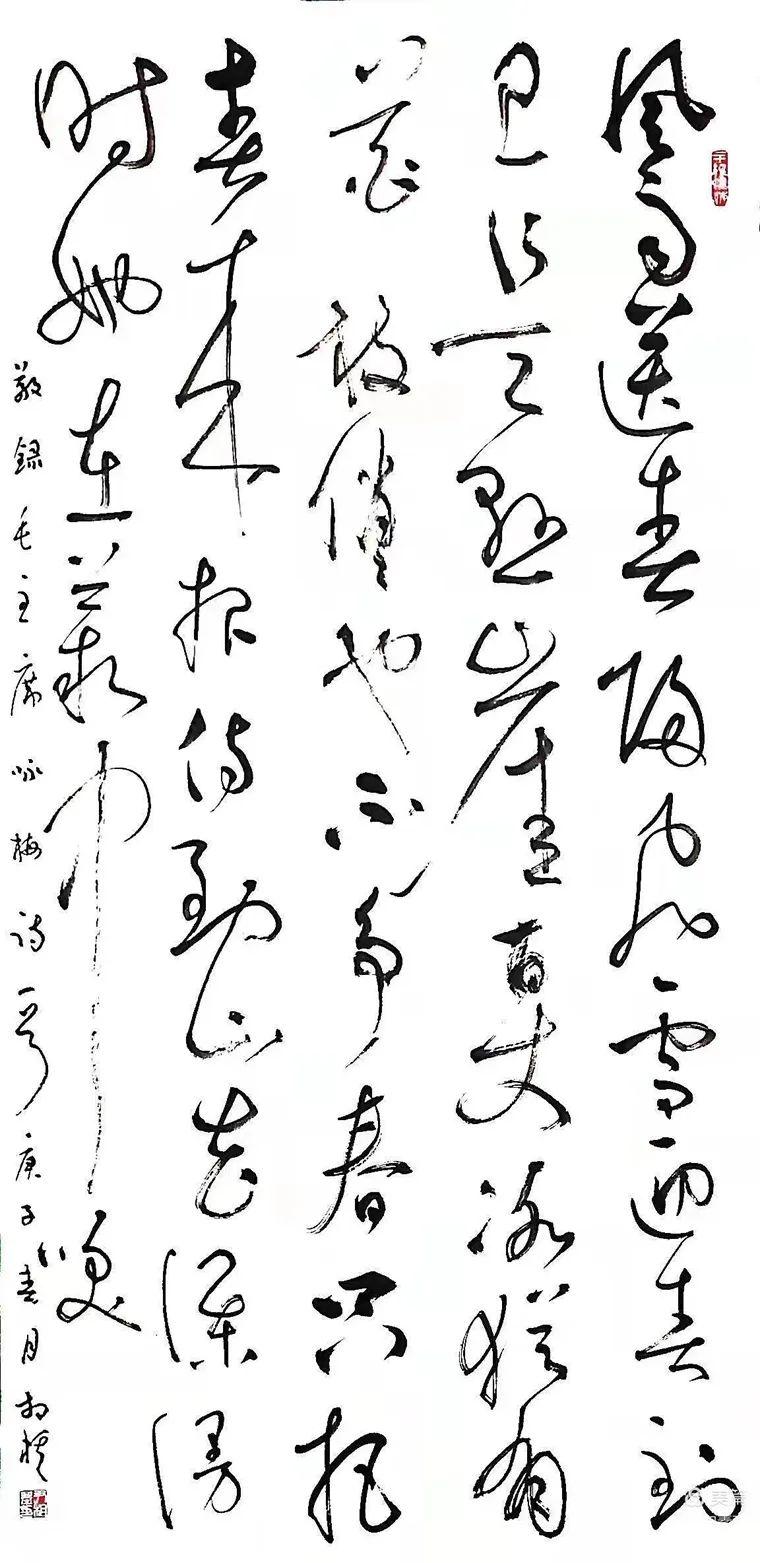 風雨送春歸飛雪迎春到
已是悬崖百丈冰猶有
花枝俏也不争春只把
春来报待到山花爛漫
时她在叢中笑
敬錄毛主席咏梅诗一首庚子春月